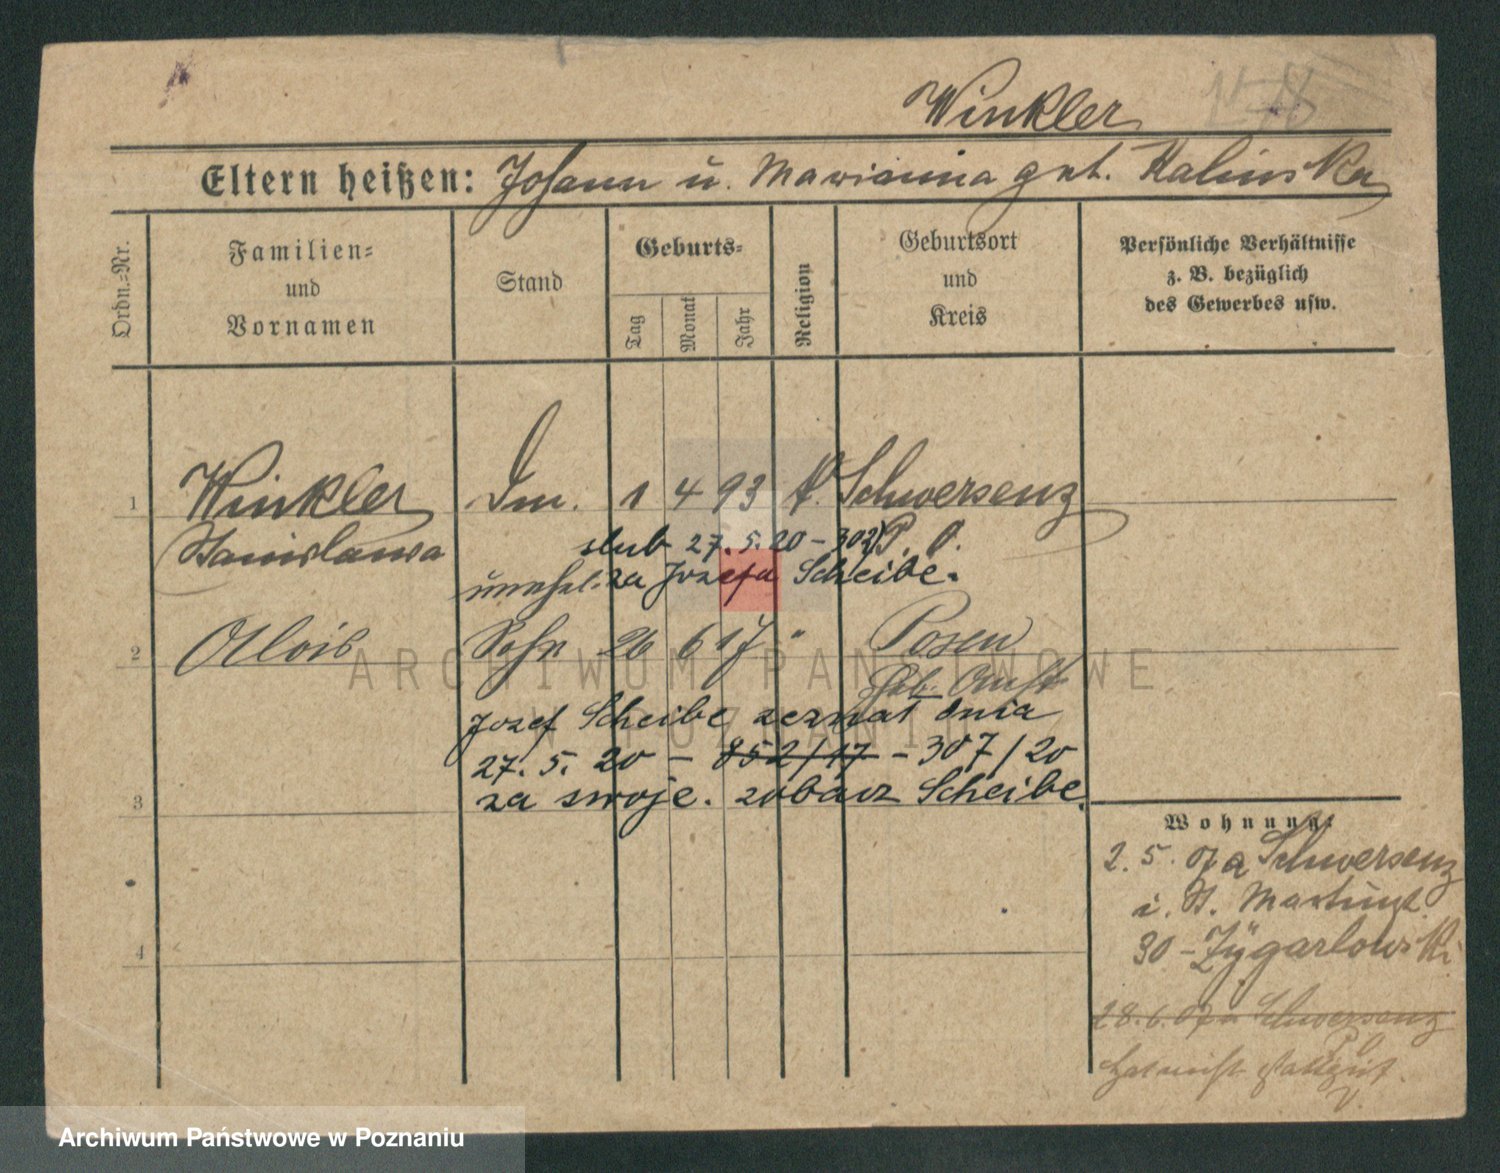 Winkler
Eltern heißen: Johann u. Marianna geb. Kalinska
Ordn.-Nr.
Familien-
und
Vornamen
Stand
Geburts-
Tag
Monat
Jahr
Religion
Geburtsort
und
Kreis
Persönliche Verhältnisse
z. B. bezüglich
des Gewerbes usw.
1 Winkler Dm. 1 4 93 k. Schwersenz
Stanislawa ślub 27. 5. 20 – 302 P. O.
unehel. za Józefa Scheibe.
2 Alois Sohn 26 6 17 " Posen
Geb. Anst
Józef Scheibe zeznał dnia
27. 5. 20 – 852/17 – 307/20
3 za swoje. zobacz Scheibe.
4
Wohnung:
2. 5. 07 a Schwersenz
i. St. Martinst.
30 – Zÿgarlowski
28. 6. 07 a Schwersenz
hat nicht
ARCHIWUM PAŃSTWOWE
W POZNANIU
Archiwum Państwowe w Poznaniu